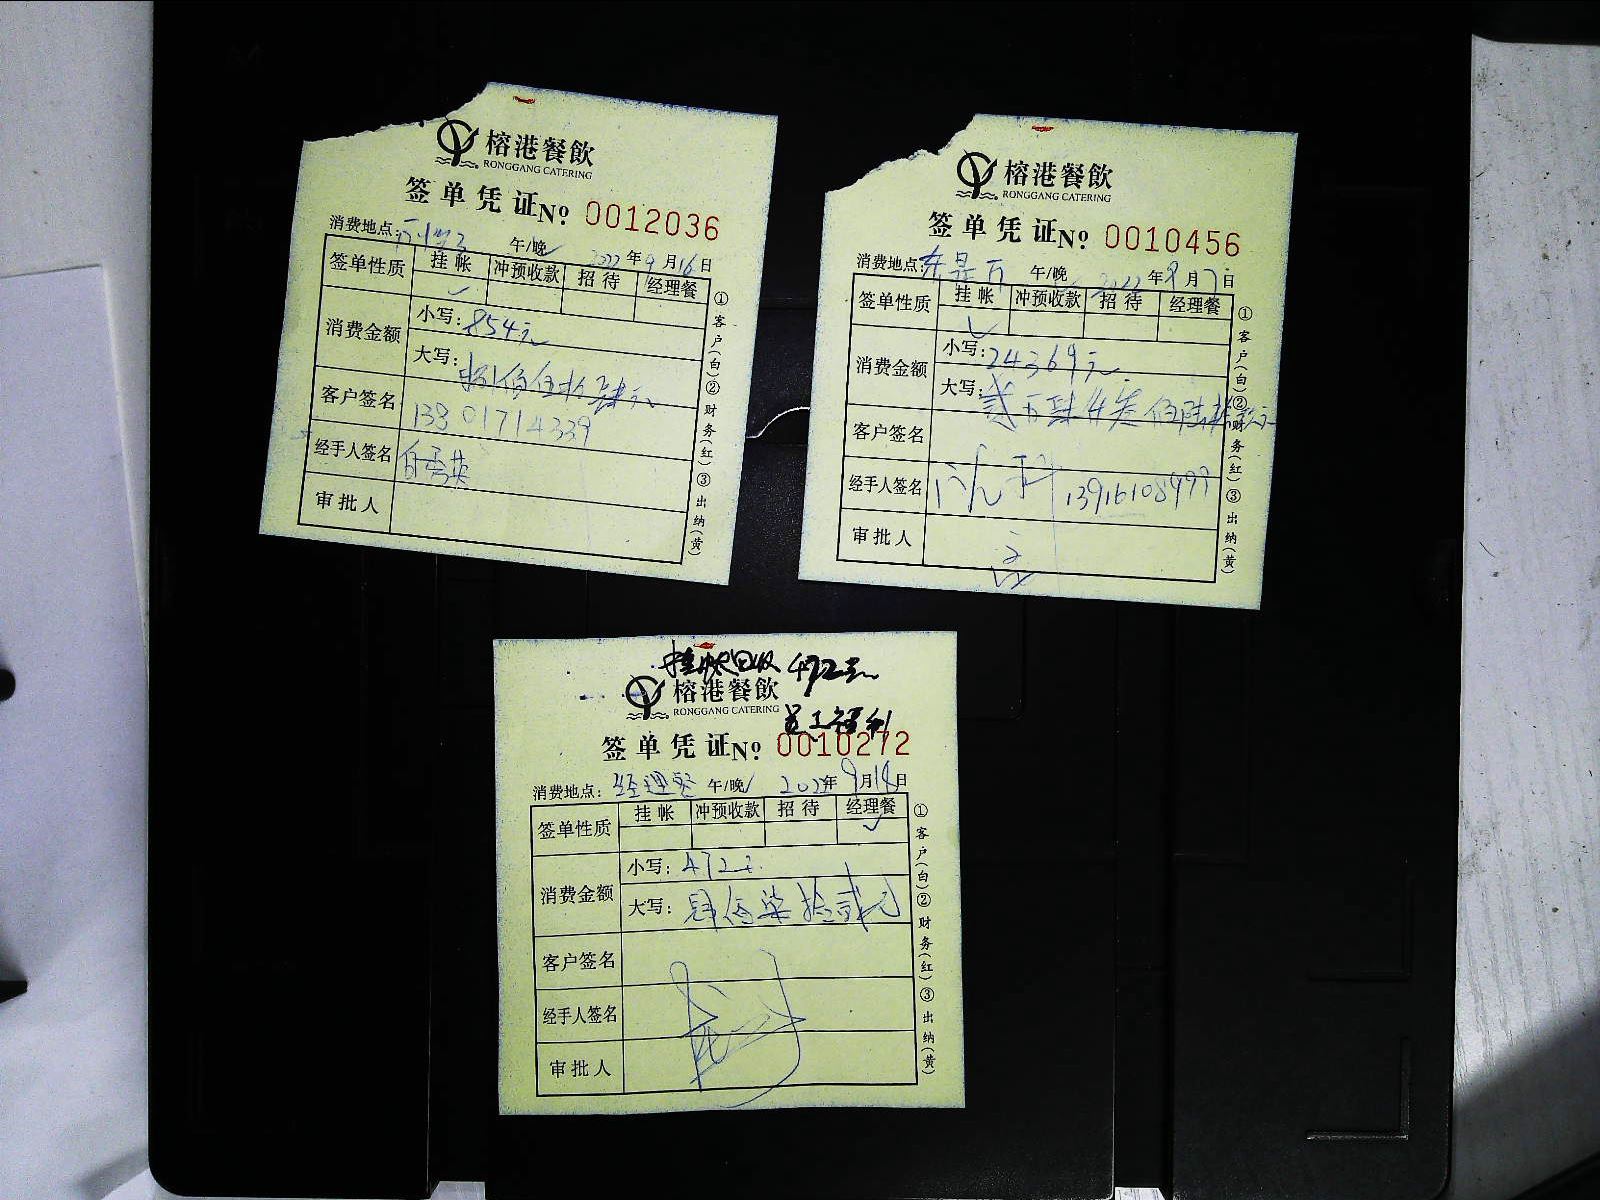 榕港餐飲
RONGGANG CATERING
签单凭证 No. 0012036
消费地点: 午/晚 2022年9月16日
签单性质 挂帐 冲预收款 招待 经理餐
✓
消费金额 小写: 854元
大写: 捌佰伍拾肆元
客户签名 13801714339
经手人签名
审批人
①客户(白)②财务(红)③出纳(黄)
榕港餐飲
RONGGANG CATERING
签单凭证 No. 0010456
消费地点: 午/晚 2022年9月7日
签单性质 挂帐 冲预收款 招待 经理餐
✓
消费金额 小写: 24369元
大写: 贰万肆仟叁佰陆拾玖元
客户签名
经手人签名
审批人
①客户(白)②财务(红)③出纳(黄)
挂帐回收 472元
榕港餐飲
RONGGANG CATERING
员工福利
签单凭证 No. 0010272
消费地点: 经理餐 午/晚 2022年9月18日
签单性质 挂帐 冲预收款 招待 经理餐
✓
消费金额 小写: 472元
大写: 肆佰柒拾贰元
客户签名
经手人签名
审批人
①客户(白)②财务(红)③出纳(黄)